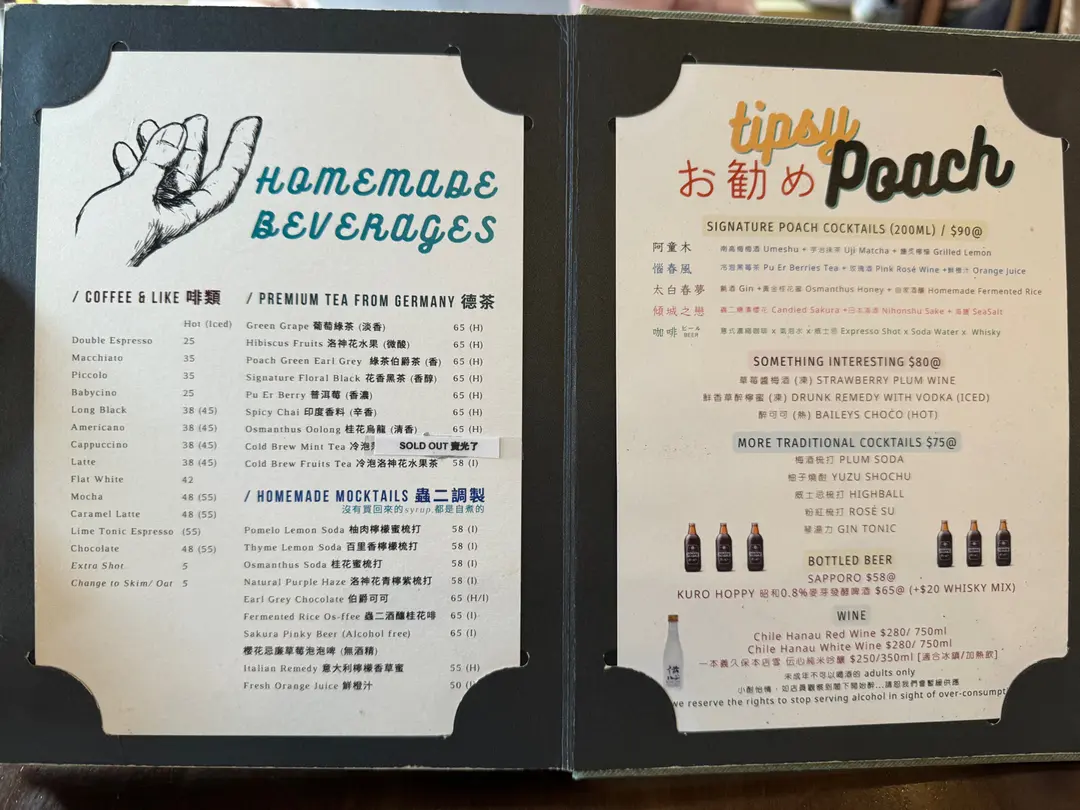 HOMEMADE
BEVERAGES
/ COFFEE & LIKE 啡類
Hot (Iced)
Double Espresso 25
Macchiato 35
Piccolo 35
Babycino 25
Long Black 38 (45)
Americano 38 (45)
Cappuccino 38 (45)
Latte 38 (45)
Flat White 42
Mocha 48 (55)
Caramel Latte 48 (55)
Lime Tonic Espresso (55)
Chocolate 48 (55)
Extra Shot 5
Change to Skim/ Oat 5
/ PREMIUM TEA FROM GERMANY 德茶
Green Grape 葡萄綠茶 (淡香) 65 (H)
Hibiscus Fruits 洛神花水果 (微酸) 65 (H)
Poach Green Earl Grey 綠茶伯爵茶 (香) 65 (H)
Signature Floral Black 花香黑茶 (香醇) 65 (H)
Pu Er Berry 普洱莓 (香濃) 65 (H)
Spicy Chai 印度香料 (辛香) 65 (H)
Osmanthus Oolong 桂花烏龍 (清香) 65 (H)
Cold Brew Mint Tea 冷泡 SOLD OUT 賣光了
Cold Brew Fruits Tea 冷泡洛神花水果茶 58 (I)
/ HOMEMADE MOCKTAILS 蟲二調製
沒有買回來的syrup,都是自煮的
Pomelo Lemon Soda 柚肉檸檬蜜梳打 58 (I)
Thyme Lemon Soda 百里香檸檬梳打 58 (I)
Osmanthus Soda 桂花蜜梳打 58 (I)
Natural Purple Haze 洛神花青檸紫梳打 58 (I)
Earl Grey Chocolate 伯爵可可 65 (H/I)
Fermented Rice Os-ffee 蟲二酒釀桂花啡 65 (I)
Sakura Pinky Beer (Alcohol free) 65 (I)
櫻花忌廉草莓泡泡啤 (無酒精)
Italian Remedy 意大利檸檬香草蜜 55 (H)
Fresh Orange Juice 鮮橙汁 50
tipsy
お勧め Poach
SIGNATURE POACH COCKTAILS (200ML) / $90@
阿童木 南高梅梅酒 Umeshu + 宇治抹茶 Uji Matcha + 檸檬 Grilled Lemon
恼春風 冷泡黑莓茶 Pu Er Berries Tea + 玫瑰酒 Pink Rosé Wine +鮮橙汁 Orange Juice
太白春夢 氈酒 Gin +黃金桂花蜜 Osmanthus Honey + 自家酒釀 Homemade Fermented Rice
傾城之戀 蟲二糖漬櫻花 Candied Sakura +日本清酒 Nihonshu Sake + 海鹽 SeaSalt
咖啡 ビール BEER 意式濃縮咖啡 x 梳打水 x 威士忌 Espresso Shot x Soda Water x Whisky
SOMETHING INTERESTING $80@
草莓醬梅酒 (凍) STRAWBERRY PLUM WINE
鮮香草醉檸蜜 (凍) DRUNK REMEDY WITH VODKA (ICED)
醉可可 (熱) BAILEYS CHOCO (HOT)
MORE TRADITIONAL COCKTAILS $75@
梅酒梳打 PLUM SODA
柚子燒酎 YUZU SHOCHU
威士忌梳打 HIGHBALL
粉紅梳打 ROSÉ SU
琴湯力 GIN TONIC
BOTTLED BEER
SAPPORO $58@
KURO HOPPY 昭和0.8%麥芽發酵啤酒 $65@ (+$20 WHISKY MIX)
WINE
Chile Hanau Red Wine $280/ 750ml
Chile Hanau White Wine $280/ 750ml
一本義久保本店雪 伝心純米吟釀 $250/350ml [適合冰鎮/加熱飲]
未成年不可以喝酒的 adults only
小酌怡情，如店員觀察到閣下開始醉...請恕我們會暫緩供應
we reserve the rights to stop serving alcohol in sight of over-consumpti